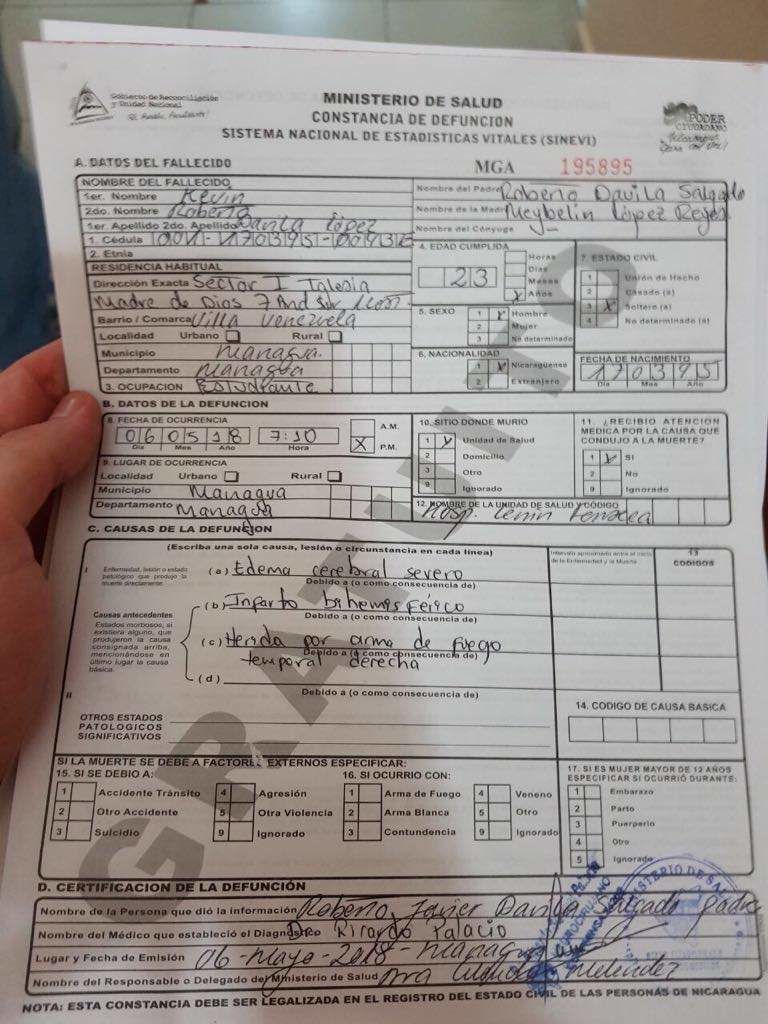 Gobierno de Reconciliación
y Unidad Nacional
El Pueblo, Presidente!
MINISTERIO DE SALUD
CONSTANCIA DE DEFUNCION
SISTEMA NACIONAL DE ESTADISTICAS VITALES (SINEVI)
PODER
CIUDADANO
A. DATOS DEL FALLECIDO
MGA 195895
NOMBRE DEL FALLECIDO
1er. Nombre Kevin
2do. Nombre Roberto
1er. Apellido 2do. Apellido Davila López
1. Cédula
2. Etnia
Nombre del Padre Roberto Davila Salgado
Nombre de la Madre Meybelin López Reyes
Nombre del Cónyuge
RESIDENCIA HABITUAL
Dirección Exacta Sector I Iglesia
Madre de Dios 7 And sur
Barrio / Comarca Villa Venezuela
Localidad Urbano Rural
Municipio Managua
Departamento Managua
3. OCUPACION Estudiante
4. EDAD CUMPLIDA
23
Horas
Dias
Meses
X Años
5. SEXO
1 Hombre
2 Mujer
3 No determinado
6. NACIONALIDAD
1 Nicaragüense
2 Extranjero
7. ESTADO CIVIL
1 Unión de Hecho
2 Casado (a)
3 X Soltero (a)
4 No determinado (a)
FECHA DE NACIMIENTO
170395
Dia Mes Año
B. DATOS DE LA DEFUNCION
8. FECHA DE OCURRENCIA
060518 7:10
Dia Mes Año Hora
A.M.
X P.M.
9. LUGAR DE OCURRENCIA
Localidad Urbano Rural
Municipio Managua
Departamento Managua
10. SITIO DONDE MURIO
1 Unidad de Salud
2 Domicilio
3 Otro
9 Ignorado
11. ¿RECIBIO ATENCION
MEDICA POR LA CAUSA QUE
CONDUJO A LA MUERTE?
1 SI
2 No
9 Ignorado
12. NOMBRE DE LA UNIDAD DE SALUD Y CÓDIGO
Hosp. Lenin Fonseca
C. CAUSAS DE LA DEFUNCION
(Escriba una sola causa, lesión o circunstancia en cada línea)
Intervalo aproximado entre el inicio
de la Enfermedad y la Muerte
13
CODIGOS
I
Enfermedad, lesión o estado
patológico que produjo la
muerte directamente.
(a) Edema cerebral severo
Debido a (o como consecuencia de)
Causas antecedentes
Estados morbosos, si
existiera alguno, que
produjeron la causa
consignada arriba,
mencionándose en
último lugar la causa
básica.
(b) Infarto bihemisférico
Debido a (o como consecuencia de)
(c) Herida por arma de fuego
Debido a (o como consecuencia de)
temporal derecha
(d)
Debido a (o como consecuencia de)
II
OTROS ESTADOS
PATOLOGICOS
SIGNIFICATIVOS
14. CODIGO DE CAUSA BASICA
GRATUITO
SI LA MUERTE SE DEBE A FACTORES EXTERNOS ESPECIFICAR:
15. SI SE DEBIO A:
1 Accidente Tránsito
2 Otro Accidente
3 Suicidio
4 Agresión
5 Otra Violencia
9 Ignorado
16. SI OCURRIO CON:
1 Arma de Fuego
2 Arma Blanca
3 Contundencia
4 Veneno
5 Otro
9 Ignorado
17. SI ES MUJER MAYOR DE 12 AÑOS
ESPECIFICAR SI OCURRIÓ DURANTE:
1 Embarazo
2 Parto
3 Puerperio
4 Otro
5 Ignorado
D. CERTIFICACION DE LA DEFUNCIÓN
Nombre de la Persona que dió la información Roberto Javier Davila Salgado padre
Nombre del Médico que estableció el Diagnóstico Dr Ricardo Palacio
Lugar y Fecha de Emisión 06-mayo-2018 - managua
Nombre del Responsable o Delegado del Ministerio de Salud Dra Melendez
NOTA: ESTA CONSTANCIA DEBE SER LEGALIZADA EN EL REGISTRO DEL ESTADO CIVIL DE LAS PERSONAS DE NICARAGUA